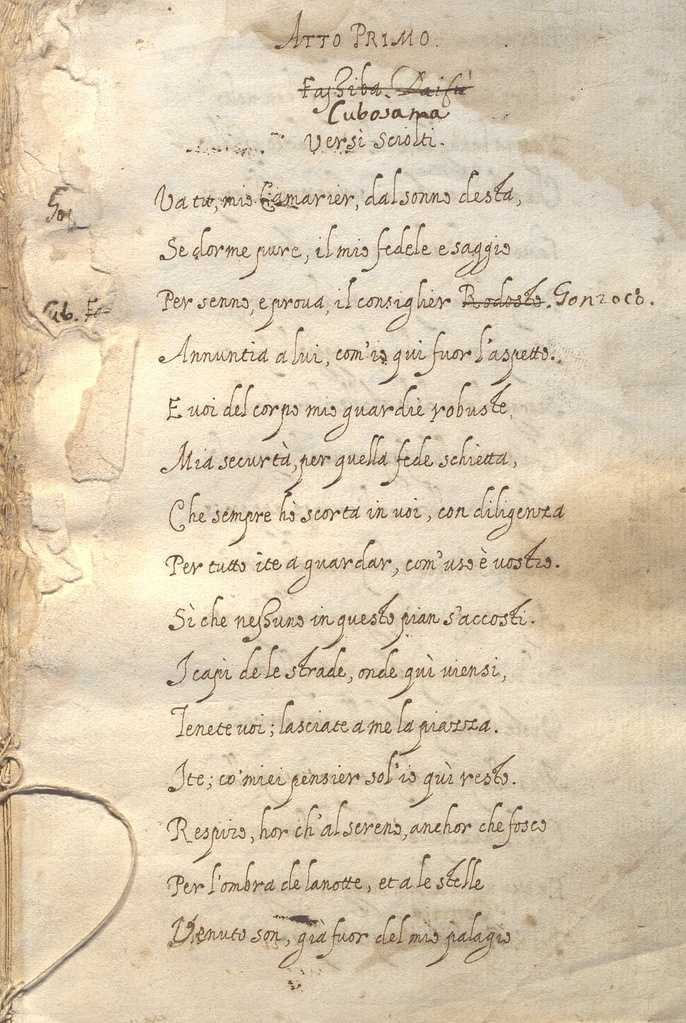 ATTO PRIMO.
Faxiba. Daifù
Cubosama
Versi sciolti.
Va tu, mio Camarier, dal sonno desta,
Se dorme pure, il mio fedele e saggio
Per senno, e prova, il consiglier Rodosto. Gonzoco.
Annuntia a lui, com'io qui fuor l'aspetto.
E voi del corpo mio guardie robuste,
Mia securtà, per quella fede schietta,
Che sempre hò scorta in voi, con diligenza
Per tutto ite a guardar, com'uso è vostro.
Sì che nessuno in questo pian s'accosti.
I capi de le strade, onde quì viensi,
Tenete voi; lasciate a me la piazza.
Ite; co' miei pensier sol'io quì resto.
Respiro, hor ch'al sereno, anchor che fosco
Per l'ombra de la notte, et a le stelle
Venuto son, già fuor del mio palagio
Cub.